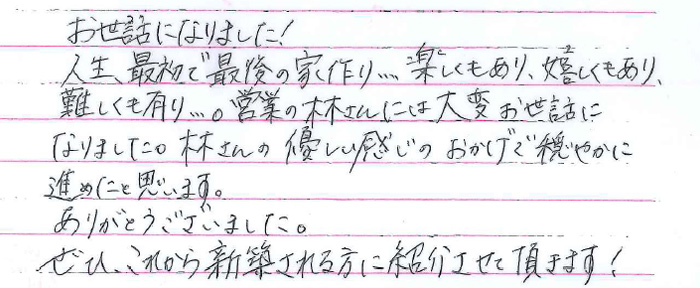 お世話になりました!
人生、最初で最後の家作り… 楽しくもあり、嬉しくもあり、
難しくも有り…。営業の林さんには大変お世話に
なりました。林さんの優しい感じのおかげで穏やかに
進めたと思います。
ありがとうございました。
ぜひ、これから新築される方に紹介させて頂きます!